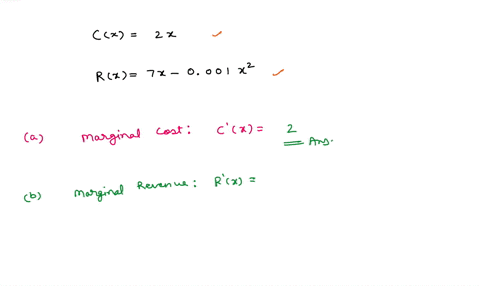 C(x) = 2x
R(x) = 7x - 0.001 x²
(a) Marginal Cost: C'(x) = 2 Ans.
(b) Marginal Revenue: R'(x) =